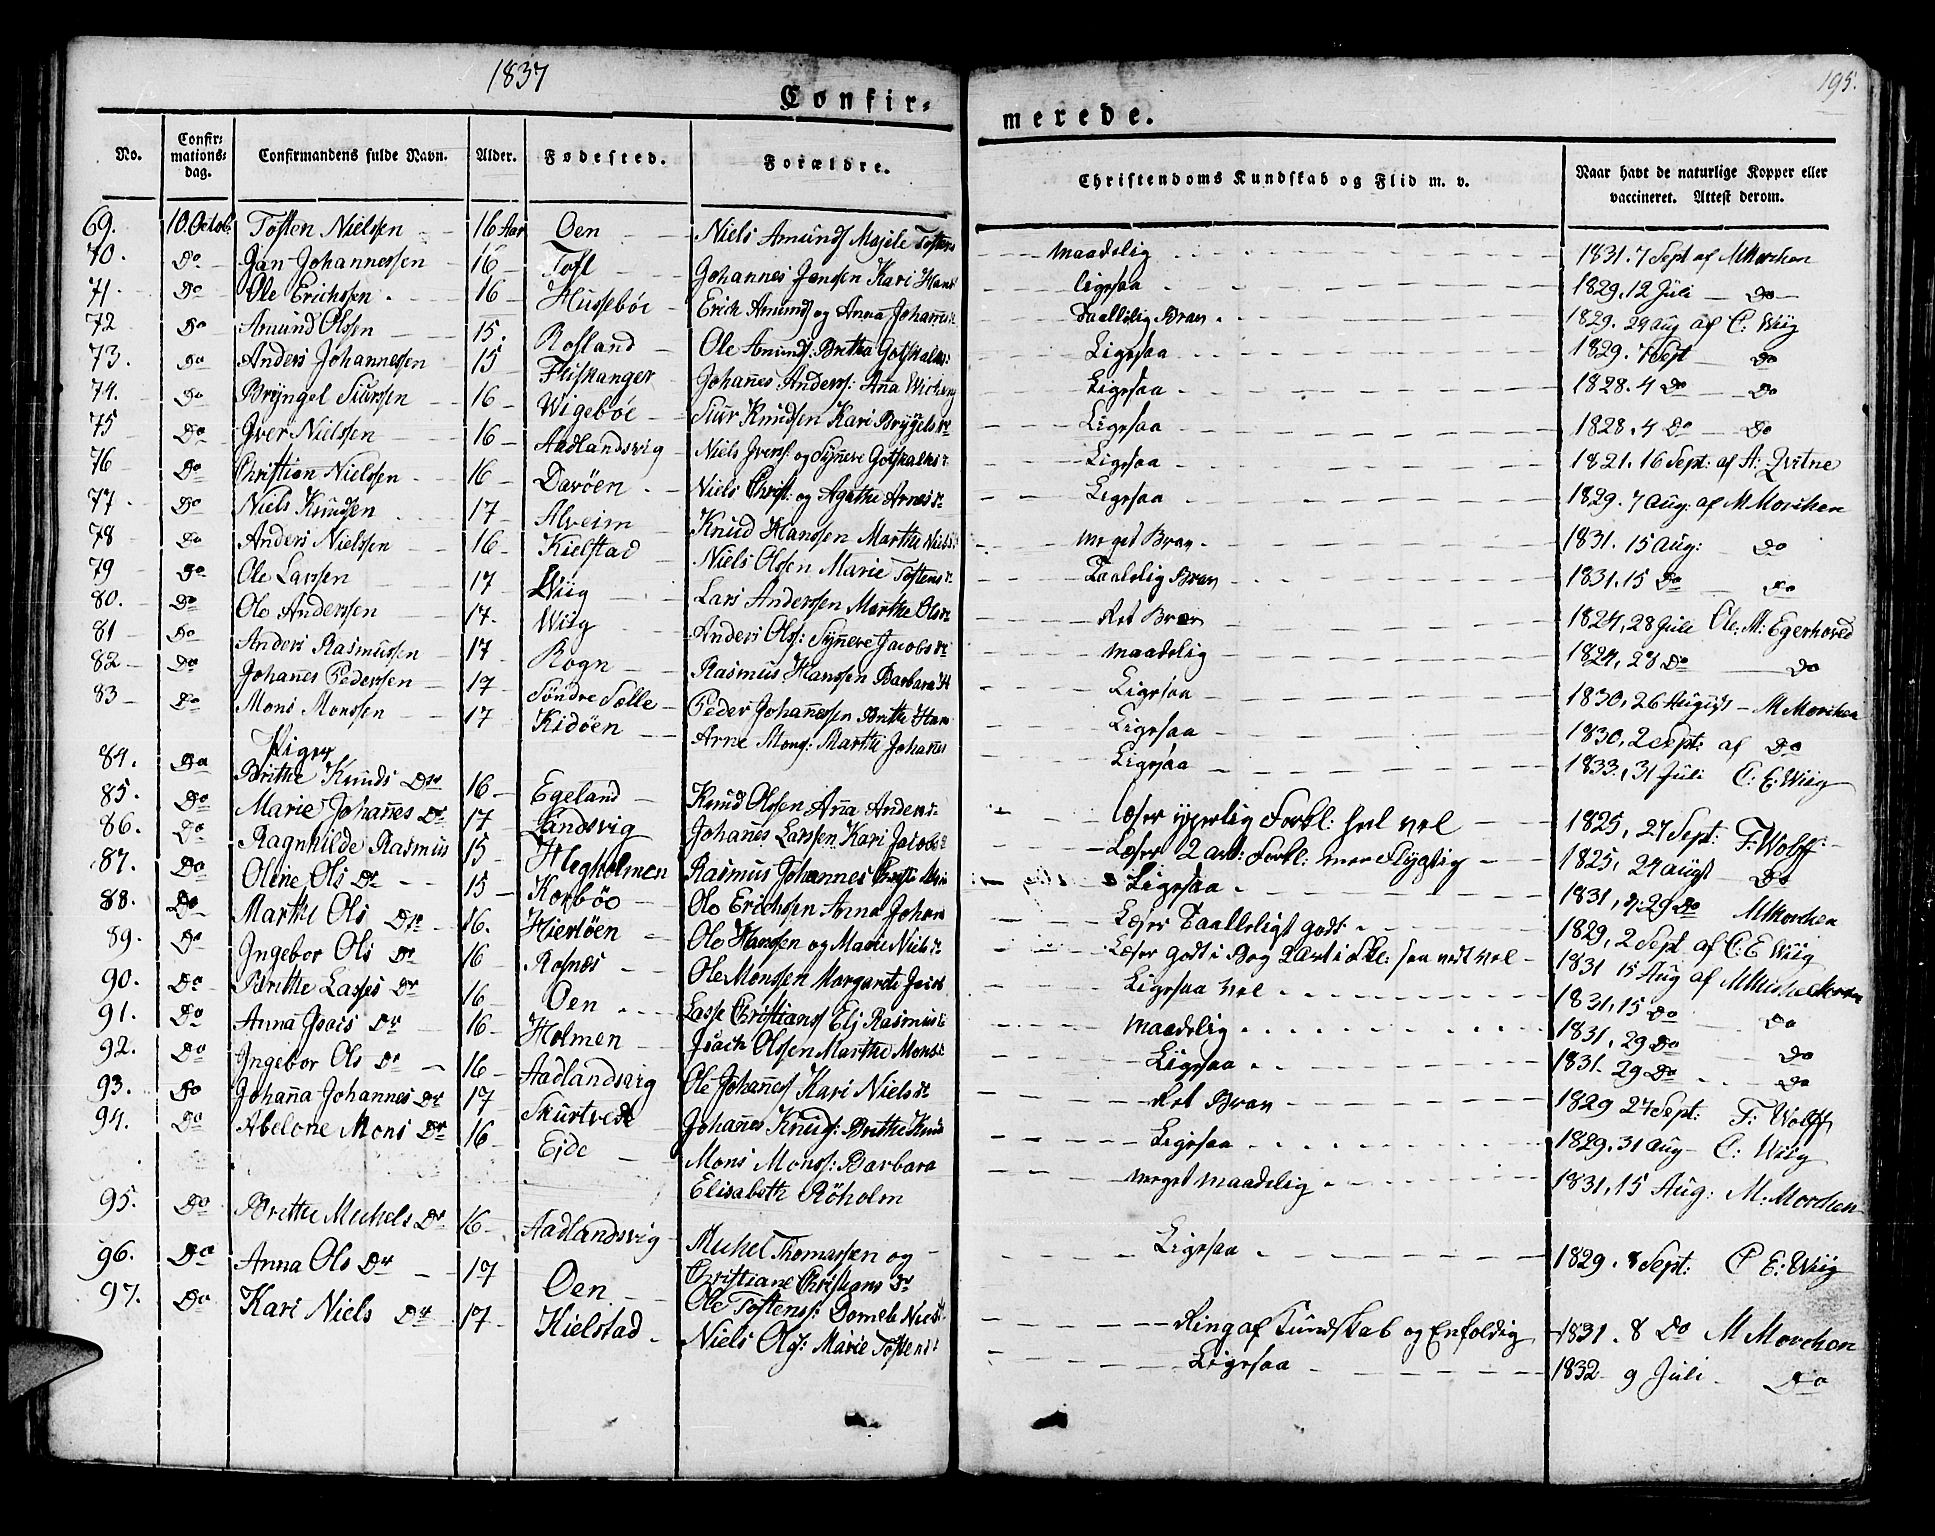 1837
195.
Confir-
merede.
No.
Confir-
mations-
dag.
Confirmandens fulde Navn.
Alder.
Fødested.
Forældre.
Christendoms Kundskab og Flid m. v.
Naar havt de naturlige Kopper eller
vaccineret. Attest derom.
69. 10 Octob. Tosten Nielssen 16 Aar Oen Niels Amunds Tostens maadelig 1831. 7 Sept af M Morchen
70. Do Jan Johannessen 16 Tofl Johannes Jonssen Kari Hans ligesaa 1829. 12 Juli Do
71. Do Ole Erichssen 16 Hussebøe Erich Amunds og Anna Johans Taallelig Brav 1829. 29 Aug af C: Wiig
72 Do Amund Olssen 15. Rosland Ole Amunds: Britha Gotskalks: Ligesaa 1829. 7 Sept Do
73. Do Anders Johannessen 15 Fliskanger Johañes Anderss: Aña Ligesaa 1828. 4 Do Do
74. Do Bryngel Siurssen 16 Wigebøe Siur Knudsen Kari Ligesaa 1828. 4 Do Do
75 Do Iver Nielssen 16 Aadlandsvig Niels Iverss: og Syñeve Gotskalks Ligesaa 1821. 16 Sept: af A: Qvitne
76 Do Christian Nielssen 16 Davøen Niels Christ: og Agathe Arnes Ligesaa 1829. 7 Aug: af M Morchen
77. Do Niels Knudsen 17 Alveim Knud Hanssen Marthe Niels meget Brav 1831. 15 Aug: Do
78 Do Anders Nielssen 16 Kielstad Niels Olssen Marie Tostens Taallelig Brav 1831. 15 Do Do
79 Do Ole Larssen 17 Wiig Lars Anderssen Marthe Ols Ret Brav 1824, 28 Juli Ole: M: Egerhoved
80. Do Ole Anderssen 17. Wiig Anders Olss: Syñeve Jacobs maadelig 1824, 28 Do Do
81 Do Anders Rasmussen 17 Rogn Rasmus Hanssen Barbara Ligesaa 1830, 26 August M Morchen
82 Do Johañes Pederssen 17 Søndre Sælle Peder Johañessen Brithe Hans Ligesaa 1830, 2 Sept: af Do
83 Do Mons Monssen 17 Kidøen Arne Mons: Marthe Johans Ligesaa 1833, 31 Juli C: E Wiig
Piger
84. Do Brithe Knuds Dr 16 Egeland Knud Olssen Aña Anders læser ypperlig Forkl: heel vel 1825, 27 Sept: F: Wolff
85. Do Marie Johañes Dr 17 Landsvig Johañes Larssen Kari Jacobs Læser 2 art: Forkl: mer flygtig 1825, 24 august Do
86. Do Ragnhilde Rasmus 15 Hegholmen Rasmus Johannes Ligesaa 1831, 29 Do M Morchen
87. Do Oline Ols Dr 15 Korbøe Ole Erichssen Anna Johan Læser Taalleligt godt 1829, 2 Sept af C: E Wiig
88. Do Marthe Ols Dr 16. Hiertøen Ole Hanssen og Mari Niels Læser godt i Bog 1831 15 Aug af
89. Do Ingebor Ols Dr 16 Rosnæs Ole Monssen Margarete Ligesaa vel 1831, 15 Do Do
90. Do Brithe Lasses Dr 16 Oen Lasse Cristians Elj Rasmus maadelig 1831, 29 Do Do
91. Do Anna Isacs Dr 16 Holmen Isach Olssen Marthe Mons Ligesaa 1831. 29 Do Do
92. Do Ingebor Ols Dr 16 Aadlandsvig Ole Johañes Kari Niels Ret Brav 1829 27 Sept: F: Wolff
93. Do Johaña Johannes Dr 17 Skurtvedt Johañes Knuds: Brithe Knud Ligesaa 1829. 31 Aug C: Wiig
94. Do Abelone Mons Dr 16 Eide Mons Monss: Barbara meget maadelig 1831, 15 Aug: M: Morchen
Elisabeth Røholm
95. Do Brithe Michels Dr 16 Aadlandsvig Michel Thomassen og Ligesaa 1829. 8 Sept: C E: Wiig
Christiane Christians Dr
96. Do Anna Ols Dr 17 Oen Ole Tostenss: Niels Ring af Kundskab og Enfoldig 1831. 8 Do M Morchen
97. Do Kari Niels Dr 17 Kielstad Niels Ols: Marie Tostens Ligesaa 1832 9 Juli Do